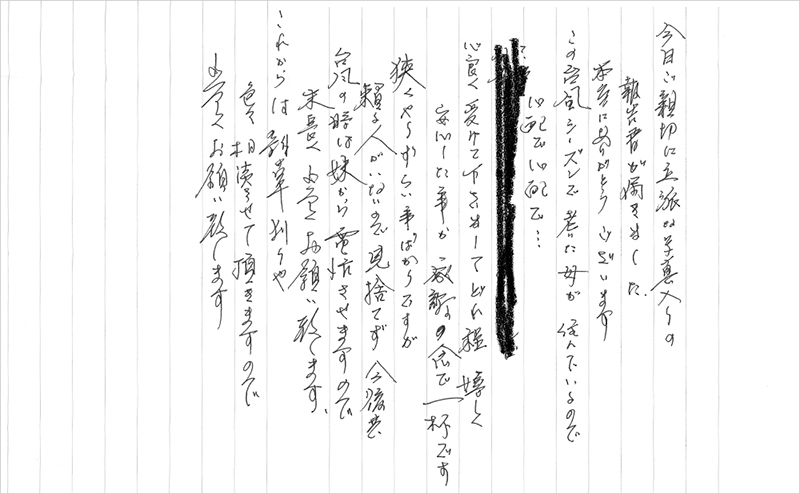 今日ご親切に立派な写真入りの
報告書が届きました。
本当にありがとうございます
この台風シーズンで老いた母が住んでいるので
心配で心配で…
心良く受けて下さいましてどれ程嬉しく
安心した事か感謝の念で一杯です
狭くやりずらい事ばかりですが
頼る人がいないので見捨てず今後共
台風の時は妹から電話させますので
末長く宜しくお願い致します。
これからは雑草刈りや
色々相談させて頂きますので
宜しくお願い致します